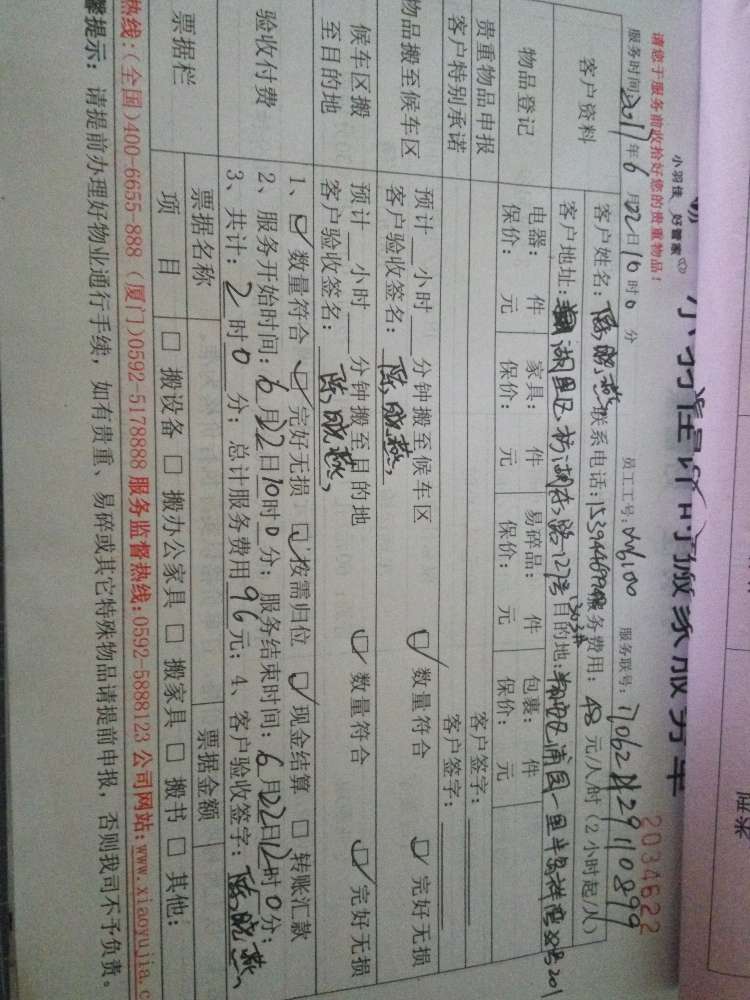 小羽佳 好管家
小羽佳计时搬家服务单
2034622
请您于服务前收拾好您的贵重物品!
服务时间: 2017年6月22日10时0分 员工工号: 服务联号:
客户资料
客户姓名: 陈晓燕 联系电话: 服务费用: 48元/人/时(2小时起/人)
客户地址: 湖里区 目的地:
物品登记
电器: 件 家具: 件 易碎品: 件 包裹: 件
保价: 元 保价: 元 保价: 元 保价: 元
贵重物品申报 客户签字:
客户特别承诺 客户签字:
物品搬至候车区
预计 小时 分钟搬至候车区 ☑ 数量符合 ☑ 完好无损
客户验收签名: 陈晓燕
候车区搬至目的地
预计 小时 分钟搬至目的地 ☑ 数量符合 ☑ 完好无损
客户验收签名: 陈晓燕
验收付费
1、☑ 数量符合 ☑ 完好无损 ☑ 按需归位 ☑ 现金结算 □ 转账汇款
2、服务开始时间: 6月22日10时0分; 服务结束时间: 6月22日12时0分;
3、共计: 2时0分; 总计服务费用 96元; 4、客户验收签字: 陈晓燕
票据栏
票据名称 票据金额
项目 □ 搬设备 □ 搬办公家具 □ 搬家具 □ 搬书 □ 其他:
热线:(全国)400-6655-888 (厦门)0592-5178888 服务监督热线:0592-5888123 公司网站:www.xiaoyujia.c
馨提示: 请提前办理好物业通行手续, 如有贵重、易碎或其它特殊物品请提前申报, 否则我司不予负责。